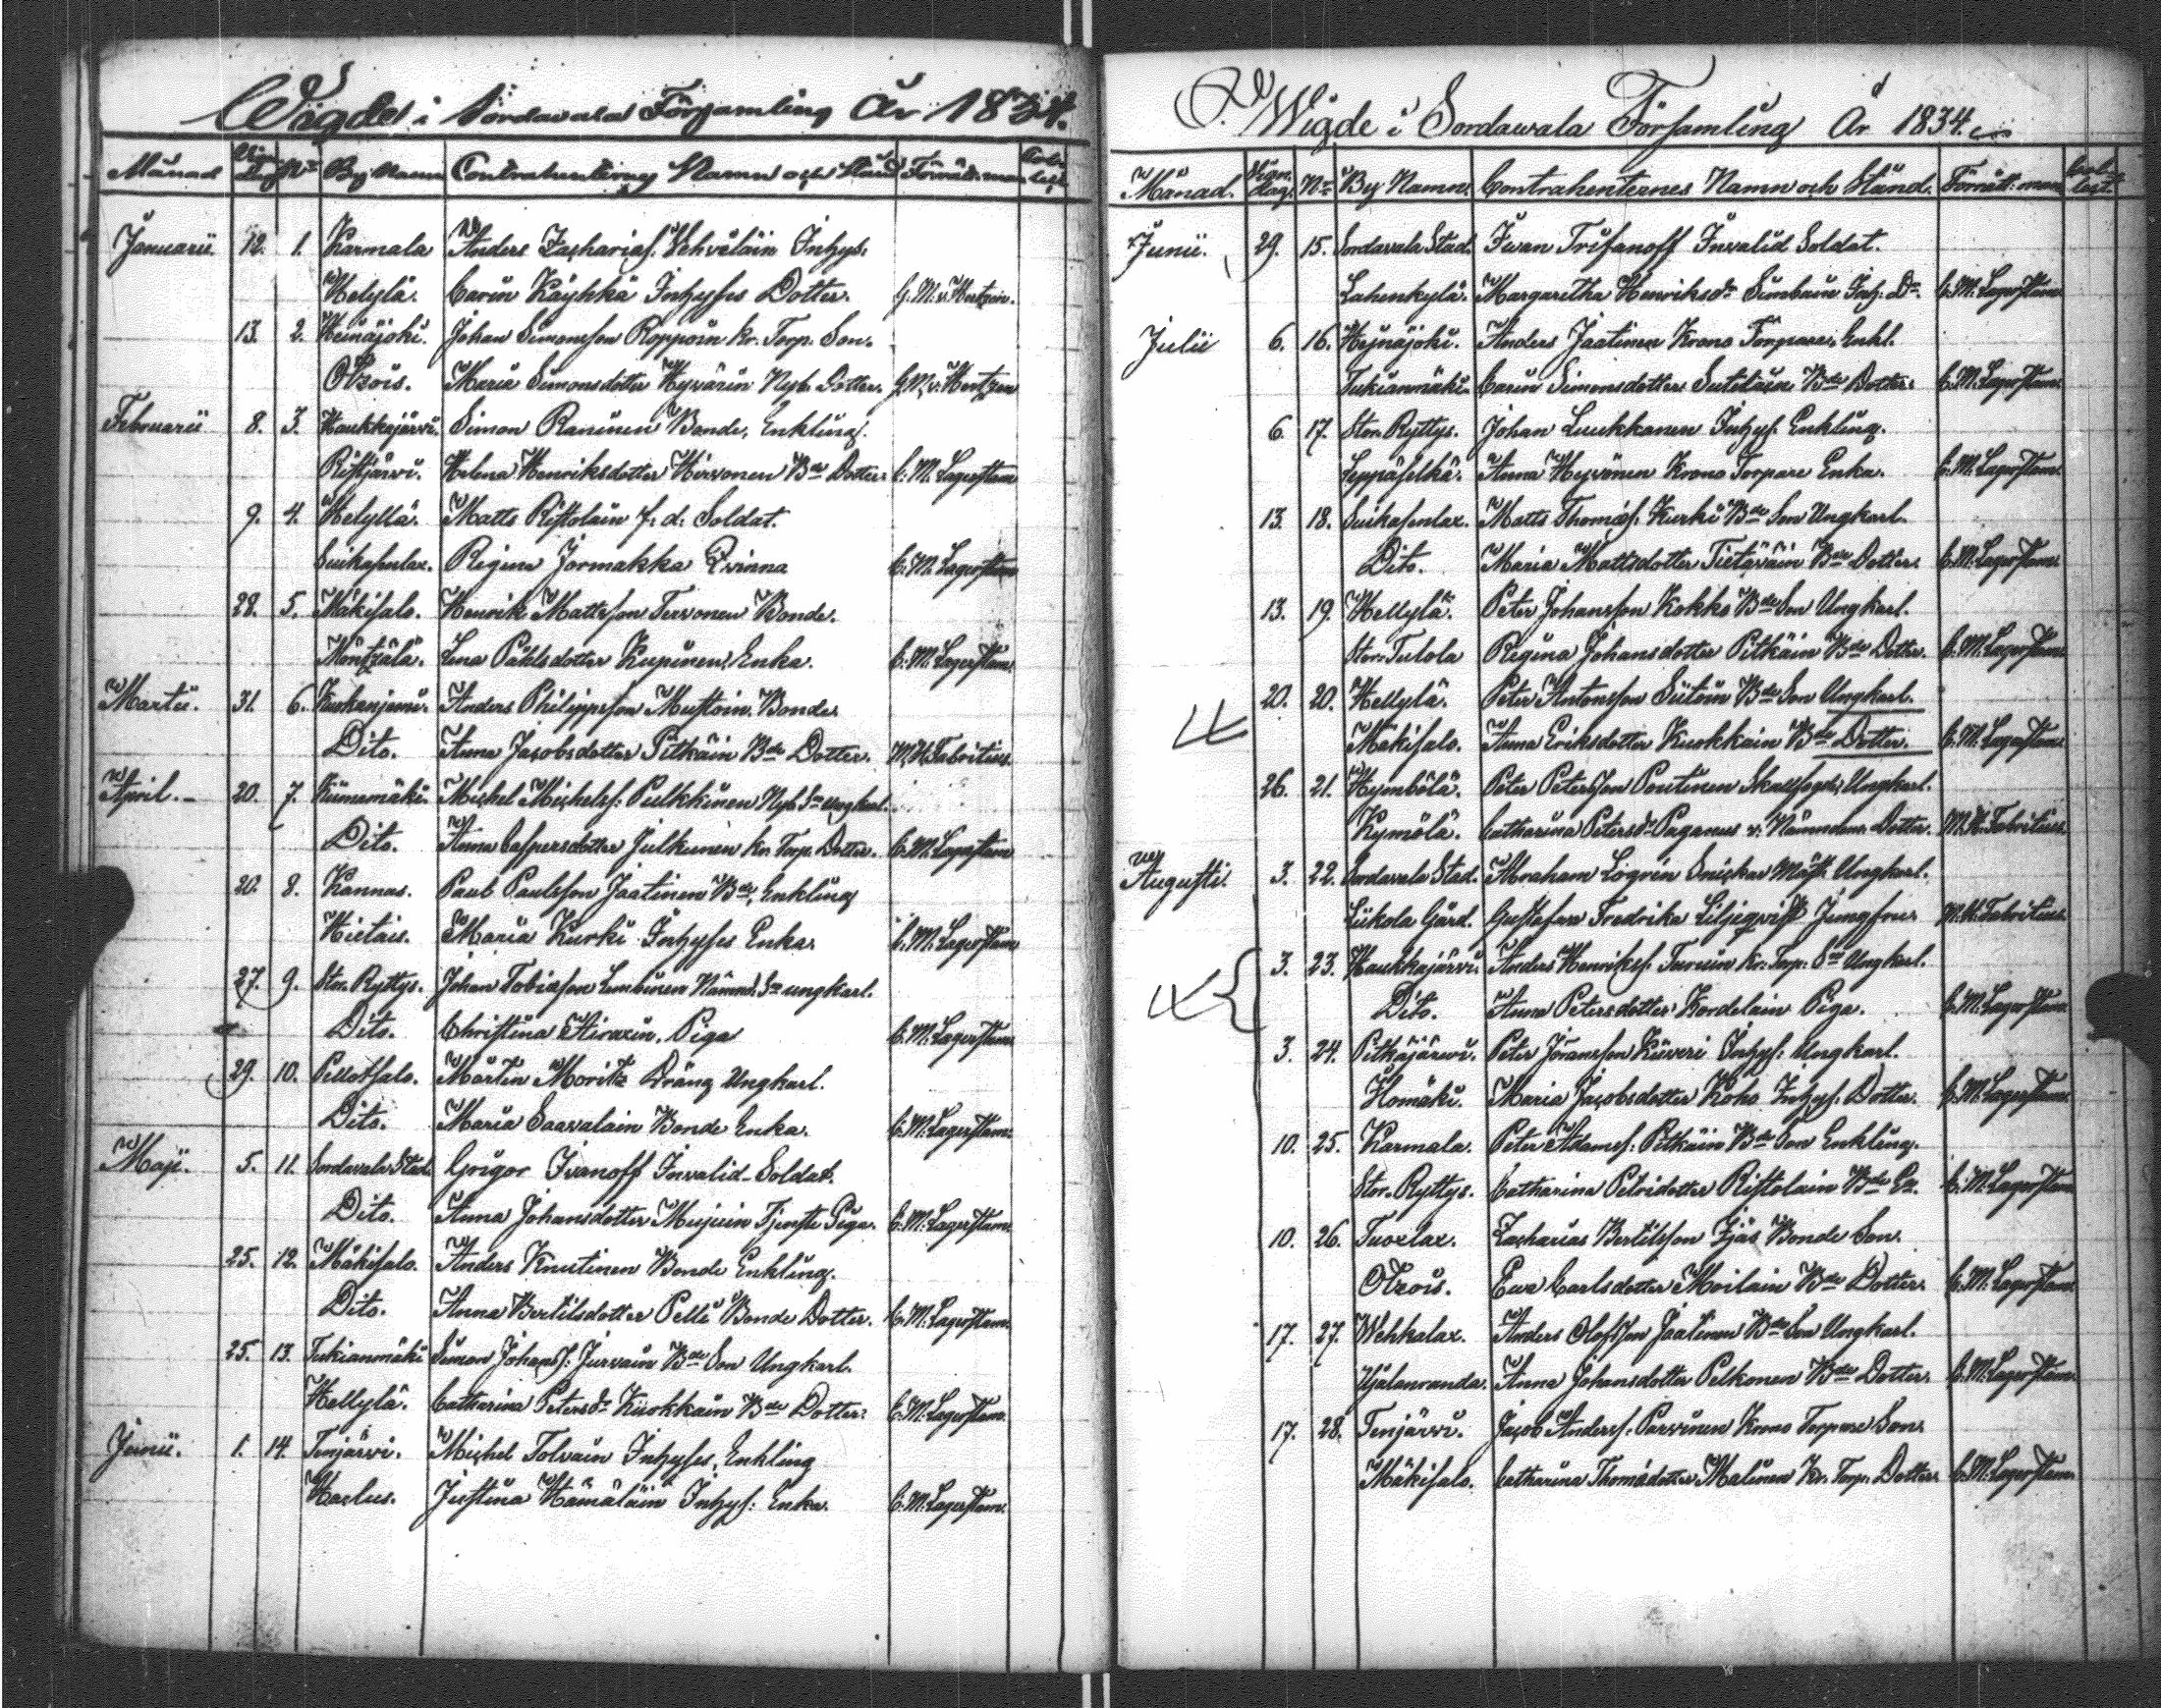 Wigde i Sordavala Församling År 1834.
Månad Vign. dag. No By Namn Contrahenternes Namn och Stånd Förrätt. man Coll- lect
Januarii 12. 1. Karmala Anders Zachariass. Vehviläin Inhys.
Helylä. Carin Käyhkä Inhyses Dotter. G. M. v. Hertzen.
13. 2. Heinäjoki. Johan Simonsson Ropponen kr. Torp. Son.
Otrois. Maria Simonsdotter Hyvärin Nyb. Dotter. G. M. v. Hertzen
Februarii 8. 3. Haukkajärvi. Simon Raninen Bonde, Enkling.
Ristijärvi. Helena Henriksdotter Hirvonen Bde Dotter C. M. Lagerstam
9. 4. Helyllä. Matts Ristolain f. d. Soldat.
Suikasenlax. Regina Jormakka Qvinna C. M. Lagerstam
28. 5. Mäkisalo. Henrik Mattsson Tervonen Bonde.
Möntzälä. Lena Påhlsdotter Kupinen Enka. C. M. Lagerstam.
Martii. 31. 6. Anders Philippsson Mustoin Bonde
Dito. Anna Jacobsdotter Pitkäin Bde Dotter. M. H. Fabritius.
April. 20. 7. Kiimamäki. Michel Michelss. Pulkkinen Nyb. Sn ungkarl.
Dito. Anna Caspersdotter Julkunen kr. Torp. Dotter. C. M. Lagerstam
20. 8. Kannas. Paul Paulsson Jaatinen Bde, Enkling
Hietais. Maria Kurki Inhyses Enka. C. M. Lagerstam
27. 9. Stor. Ryttys. Johan Tobiasson Nämnd. Sn ungkarl.
Dito. Christina Airaxin, Piga C. M. Lagerstam
29. 10. Pellotsalo. Mårten Moritz Dräng Ungkarl.
Dito. Maria Saavalain Bonde Enka. C. M. Lagerstam.
Maji. 5. 11. Sordavala Stad Grigor Ivanoff Invalid-Soldat.
Dito. Anna Johansdotter Mujuin Tjenste Piga. C. M. Lagerstam.
25. 12. Mäkisalo Anders Knutinen Bonde Enkling.
Dito. Anna Bertilsdotter Pelli Bonde Dotter. C. M. Lagerstam.
25. 13. Tukianmäki Simon Johanss. Jurvain Bde Son Ungkarl.
Hellylä. Catharina Petersdr Kuokkain Bde Dotter. C. M. Lagerstam.
Junii. 1. 14. Tenjärvi. Michel Tolvain Inhyses, Enkling
Haslus. Justina Hämäläin Inhys: Enka. C. M. Lagerstam.
Wigde i Sordawala Församling År 1834.
Månad. Vign. dag. No By Namn. Contrahenternes Namn och Stånd. Förrätt: man Coll- lect.
Junii. 29. 15. Sordavala Stad. Iwan Trifanoff Invalid Soldat.
Lahenkylä. Margaretha Henriksdr Simbain Inh. Dr. C. M. Lagerstam
Julii 6. 16. Heynäjoki. Anders Jaatinen Krono Torpare, Enkl.
Tukianmäki. Carin Simonsdotter Sutilain Bde Dotter. C. M. Lagerstam.
6. 17. Stor. Ryttys. Johan Luukkanen Inhys. Enkling.
Leppäselkä. Anna Heyvönen Krono Torpare Enka. C. M. Lagerstam.
13. 18. Suikasenlax. Matts Thomass. Kurki Bde Son Ungkarl.
Dito. Maria Mattsdotter Tietäväin Bde Dotter. C. M. Lagerstam.
13. 19. Hellylä. Peter Johansson Kokko Bde Son Ungkarl.
Stor. Tulola Regina Johansdotter Pitkäin Bde Dotter. C. M. Lagerstam.
20. 20. Hellylä. Peter Antonsson Siitoin Bde Son Ungkarl.
Mäkisalo. Anna Eriksdotter Kuokkain Bde Dotter. C. M. Lagerstam.
26. 21. Hymbölä. Peter Petersson Pontinen Skallfogde, Ungkarl.
Kymölä. Catharina Petersdr Paganus v. Nämndem. Dotter. M. H. Fabritius.
Augusti. 3. 22. Sordavala Stad. Abraham Logrén Snickar Mäst. Ungkarl.
Liikola Gård. Gustafava Fredrika Liljeqvist Jungfru M. H. Fabritius.
3. 23. Haukkajärvi. Anders Henrikss. Turuin kr. Torp. Sn Ungkarl.
Dito. Anna Petersdotter Kordelain Piga. C. M. Lagerstam.
3. 24. Pitkäjärwi. Peter Jöransson Kiiveri Inhys: Ungkarl.
Homäki. Maria Jacobsdotter Koho Inhys. Dotter. C. M. Lagerstam.
10. 25. Karmala. Peter Adamss. Pitkäin Bde Son Enkling.
Stor. Ryttys. Catharina Petridotter Ristolain Bde Ea. C. M. Lagerstam.
10. 26. Tuoxlax. Zacharias Bertilsson Ijäs Bonde Son.
Otrois. Ewa Carlsdotter Moilain Bde Dotter. C. M. Lagerstam.
17. 27. Wehkalax. Anders Olofsson Jaatinen Bde Son Ungkarl.
Hjalanranda. Anna Johansdotter Pelkonen Bde Dotter. C. M. Lagerstam.
17. 28. Tenjärvi. Jacob Anderss. Parvinen Krono Torpare Son.
Mäkisalo. Catharina Thomasdotter Malinen Kr. Torp. Dotter. C. M. Lagerstam.